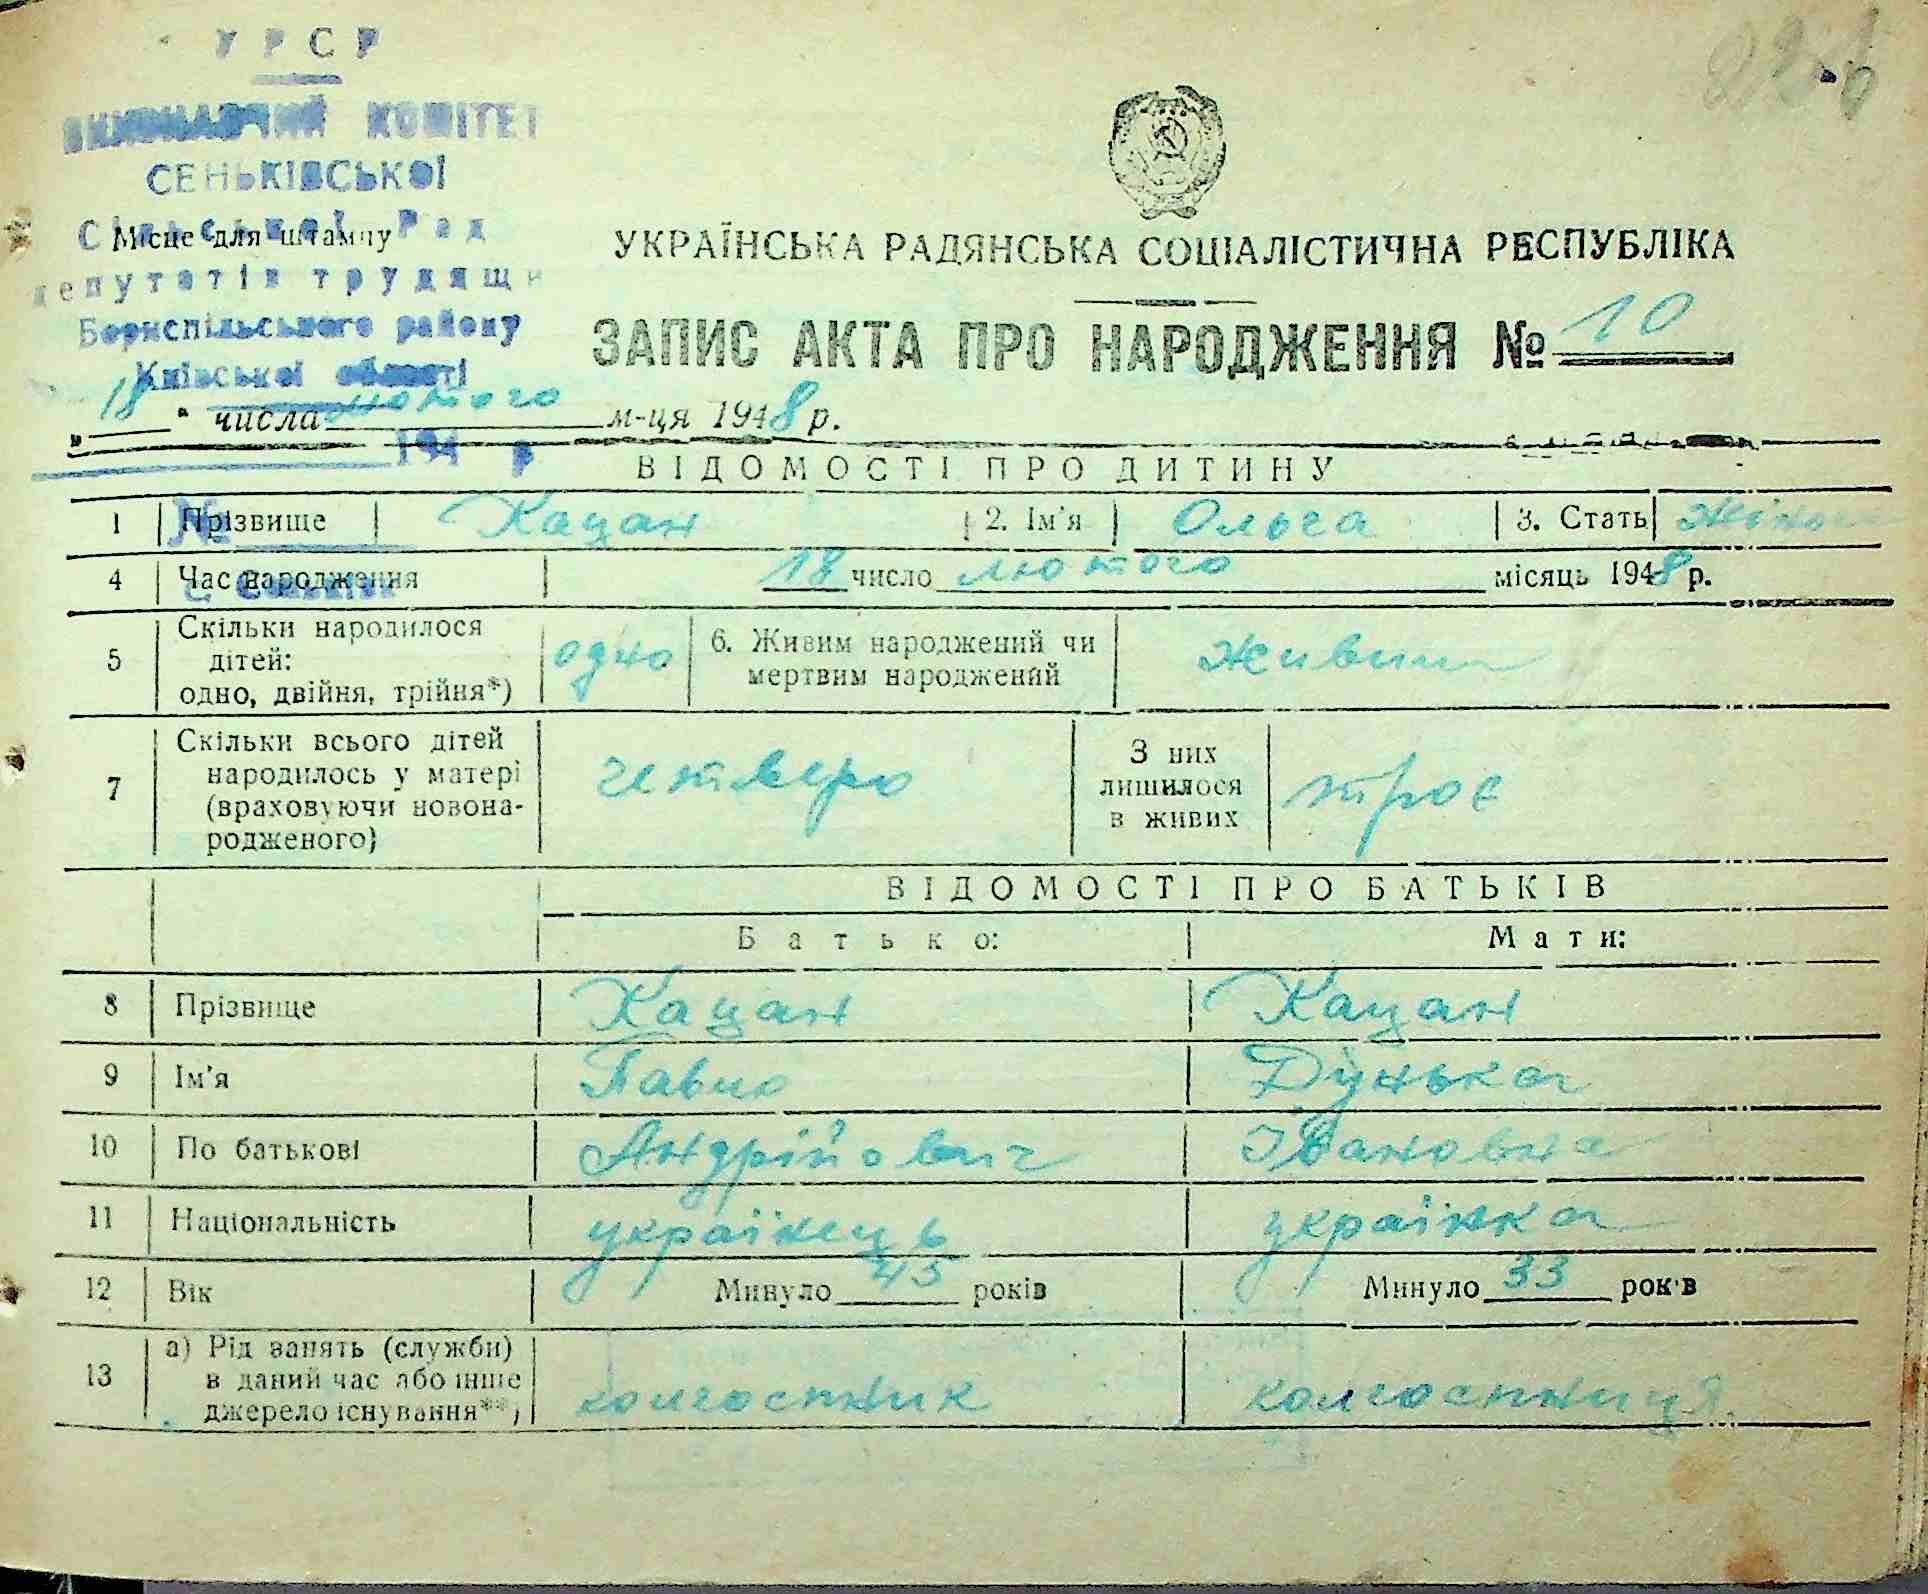 УРСР
ВИКОНАВЧИЙ КОМІТЕТ
СЕНЬКІВСЬКОЇ
Сільської Рад
Місце для штампу
депутатів трудящи
Бориспільського району
Київської області
194 р
№
с. Сеньків
УКРАЇНСЬКА РАДЯНСЬКА СОЦІАЛІСТИЧНА РЕСПУБЛІКА
ЗАПИС АКТА ПРО НАРОДЖЕННЯ № 10
„ 18 " числа лютого м-ця 1948 р.
ВІДОМОСТІ ПРО ДИТИНУ
1 Прізвище Кацан 2. Ім'я Ольга 3. Стать
4 Час народження 18 число лютого місяць 1948 р.
5 Скільки народилося дітей: одно, двійня, трійня*) одно 6. Живим народжений чи мертвим народжений живим
7 Скільки всього дітей народилось у матері (враховуючи новонародженого) четверо З них лишилося в живих троє
ВІДОМОСТІ ПРО БАТЬКІВ
Батько: Мати:
8 Прізвище Кацан Кацан
9 Ім'я Павло Дунька
10 По батькові Андрійович Івановна
11 Національність українець українка
12 Вік Минуло 45 років Минуло 33 років
13 а) Рід занять (служби) в даний час або інше джерело існування**) колгоспник колгоспниця